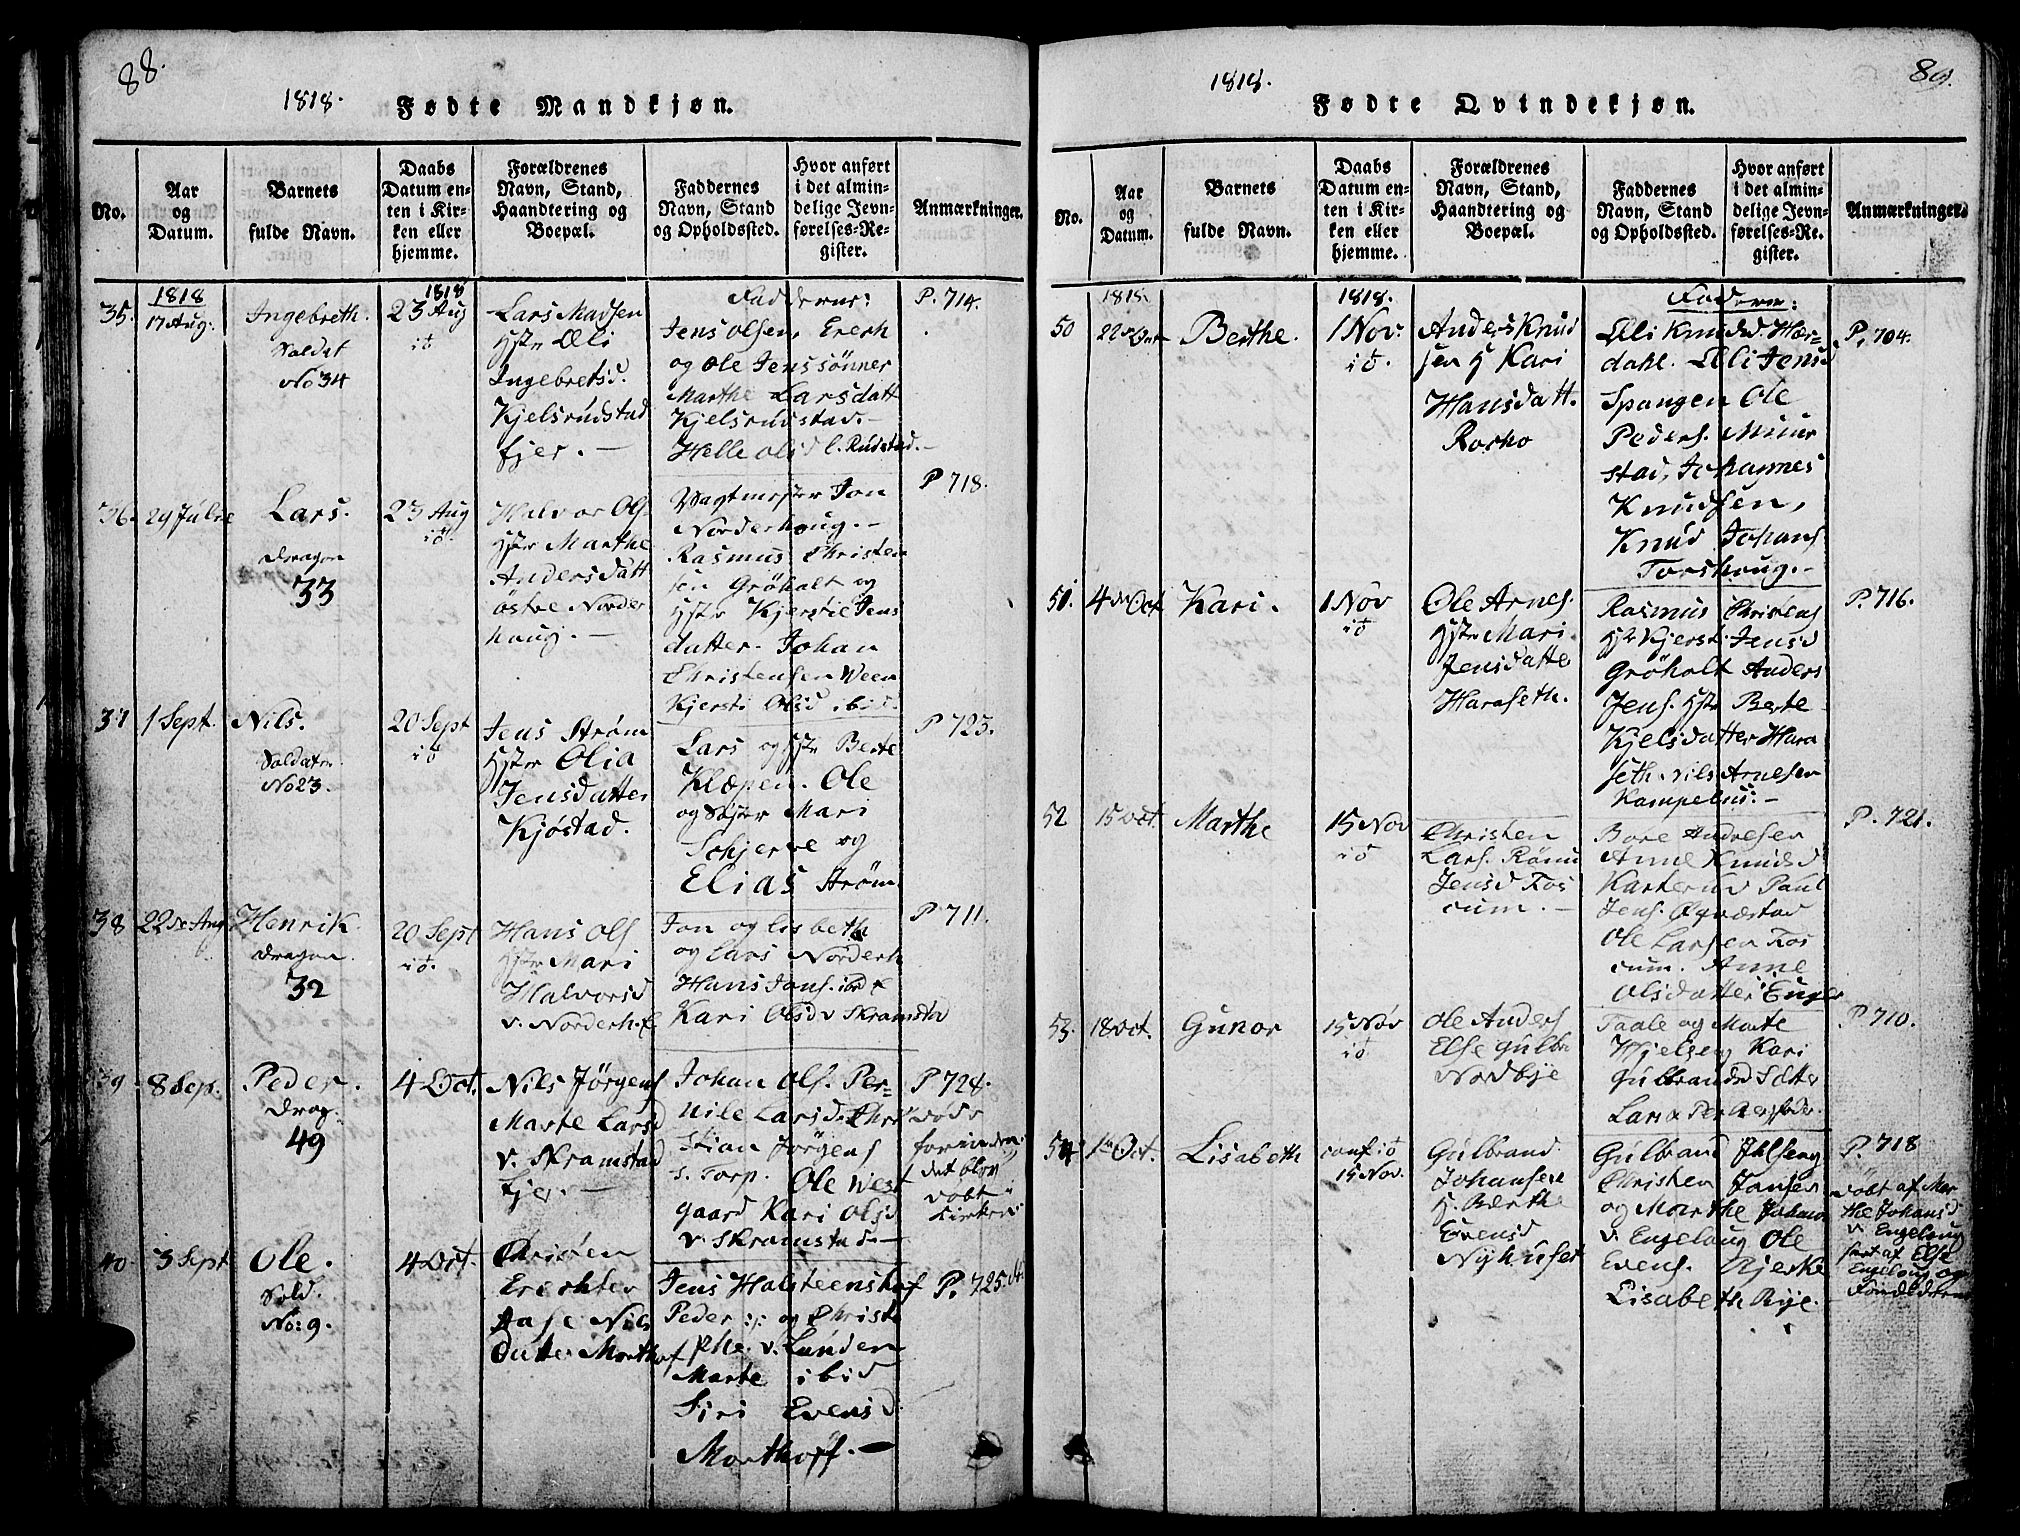 88.
1818.
Fødte Mandkjøn.
No.
Aar
og
Datum.
Barnets
fulde Navn.
Daabs
Datum en-
ten i Kir-
ken eller
hjemme.
Forældrenes
Navn, Stand,
Haandtering og
Boepæl.
Faddernes
Navn, Stand
og Opholdssted.
Hvor anført
i det almin-
delige Jevn-
førelses-Re-
gister.
Anmærkninger.
35.
1818
17 Aug.
Ingebreth.
Soldat
No 34
1818
23 Aug
Lars Madsen
Hstr Oli
Ingebretsd.
Kjelsrudstad
Ejer.
Fadderne:
Jens Olsen, Erich
og Ole Jenssønner
Marthe Larsdatt
Kjelsrudstad.
Helle Olsd l. Rudstad.
P. 714.
36.
29 Julie
Lars.
Dragon
33
23 Aug
Halvor Ols
Hstr Marthe
Andersdatt
østre Norder
houg.
Vagtmester Jon
Norderhoug.
Rasmus Christen
sen Grøholt og
Hstr Kjerstie Jens
datter. Johan
Christensen Ween
Kjersti Olsd ibid.
P 718.
37
1 Sept.
Nils.
Soldater
No 23.
20 Sept
Jens Strøm
Hstr Olia
Jensdatter
Kjøstad.
Lars og Hstr Berte
Klæpen. Ole
og Søster Mari
Schjerve og
Elias Strøm
P 723.
38
22de Aug
Henrik
Dragon.
32
20 Sept
Hans Ols
Hstr Mari
Halvorsd
v. Norderh.
Jon og Lisbeth
og Lars Norderh
Hans Jons. ibd
Kari Olsd v Skramstad
P 711.
39
8 Sep.
Peder.
Drag.
49
4 Oct.
Nils Jørgens
Marte Larsd
v. Skramstad
Ejer.
Johan Ols. Per-
nile Larsd. Chri
stian Jørgens
s. Torp. Ole West
gaard Kari Olsd
v. Skramstad
P 724.
Døbt i
Kirken
40
3 Sept
Ole.
Sold.
No: 9.
4 Oct.
Christen
Erichsen
Aase Nils
Datter Morthof
Jens Halsteenshof
Peder og Christi
v. Lunden
Marte ibid
Siri Evensd
Morthoff.
P. 725.
89.
1818.
Fødte Qvindekjøn.
No.
Aar
og
Datum.
Barnets
fulde Navn.
Daabs
Datum en-
ten i Kir-
ken eller
hjemme.
Forældrenes
Navn, Stand,
Haandtering og
Boepæl.
Faddernes
Navn, Stand
og Opholdssted.
Hvor anført
i det almin-
delige Jevn-
førelses-Re-
gister.
Anmærkninger.
50
1818
Berthe.
1818.
1 Nov.
Anders Knud
sen H Kari
Hansdatt.
Rosho
Fadderne:
Oli Knudsd. Hær-
dahl. Oli Jensd
Spangen Ole
Peders. Muur
stad, Johannes
Knudsen,
Knud Johans
Torshoug.
P. 704.
51.
4de Oct
Kari.
1 Nov
Ole Arnes.
Hstr Mari
Jensdatte
Haraseth.
Rasmus Christens
Hstr Kjersti Jensd
Grøholt Anders
Jens. Hstr Berte
Kjelsdatter Hara
seth. Nils Arnesen
P. 716.
52
15 Oct.
Marthe
15 Nov
Christen
Lars. Rønu
Jensd Fos
cum.
Bore Andresen
Anne Knudsd
Karterud Paul
Jens. Oqvæstad
Ole Larsen Fos
cum. Anne
Olsdatter Enger
P. 721.
53.
18 Oct.
Gunor
15 Nov
Ole Anders
Else Gulbr
Nordbye
Taale og Marte
Hjelseng Kari
Gulbrandsd Sætter
P. 710.
54
1 Oct.
Lisabeth
conf
15 Nov.
Gulbrand
Johansen
H. Bærthe
Evensd
Nyhuset
Gulbrand Ihlseng
Christen Jansen
og Marthe Johns
v. Engeloug Ole
Evens. Bjerke
Lisabeth Rye.
P. 718
Døbt af Mar
the Johansd
v. Engeloug
ført af Else
Engeloug og